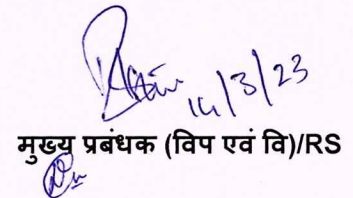 14/3/23
मुख्य प्रबंधक (विप एवं वि)/RS